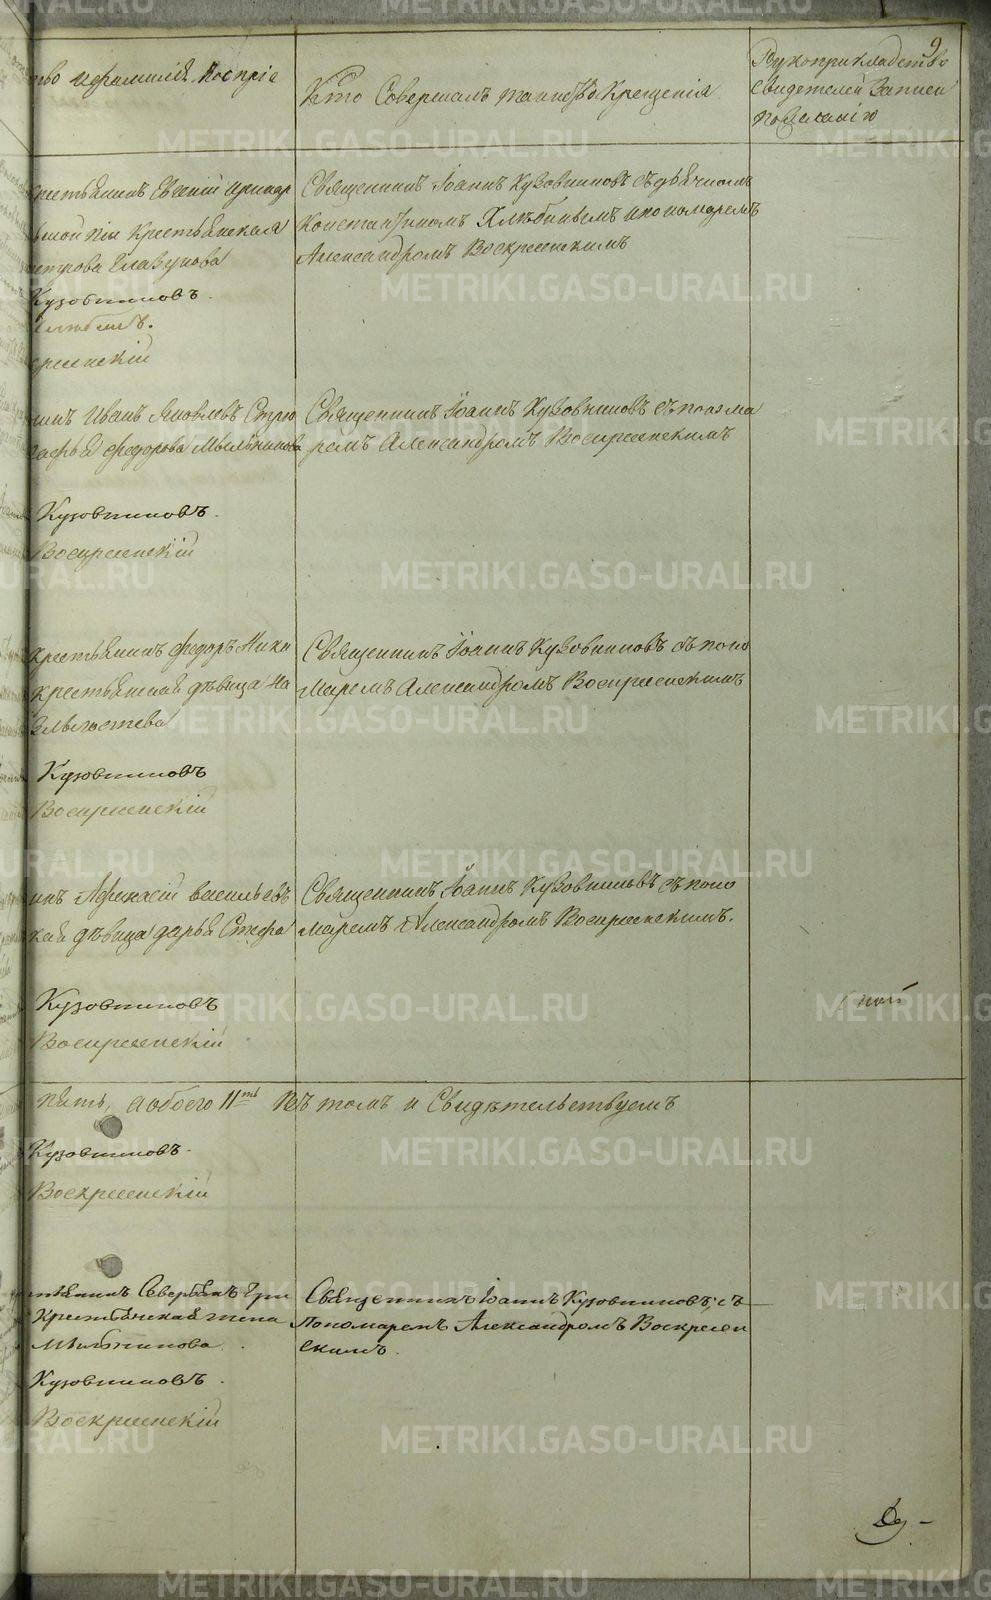 9
тво и фамилія Воспріе
Кто Совершалъ таинство Крещенія
Рукоприкладство
Свидетелей Записи
по желанію
крестьянинъ Евгеній
Крестьянская
петрова Глазунова
Кузовниковъ.
Священникъ Іоаннъ Кузовниковъ съ дьячкомъ
Константиномъ Хлѣбинымъ и пономаремъ
Александромъ Воскресенскимъ
нинъ Иванъ Яковлевъ
федорова Мыльникова
Кузовниковъ.
Воскресенскій
Священникъ Іоаннъ Кузовниковъ съ понома
ремъ Александромъ Воскресенскимъ
крестьянинъ федоръ Ники
крестьянская дѣвица На
Кузовниковъ
Воскресенскій
Священникъ Іоаннъ Кузовниковъ съ поно
маремъ Александромъ Воскресенскимъ
инъ Афанасій васильевъ
ская дѣвица дарья Стефа
Кузовниковъ
Воскресенскій
Священникъ Іоаннъ Кузовниковъ съ поно
маремъ Александромъ Воскресенскимъ.
пять, а обоего 11ть Въ томъ и Свидѣтельствуемъ
Кузовниковъ.
Воскресенскій
Крестьянская жена
Мыльникова
Кузовниковъ.
Воскресенскій
Священникъ Іоаннъ Кузовниковъ, съ
Пономаремъ Александромъ Воскресен
скимъ.
METRIKI.GASO-URAL.RU